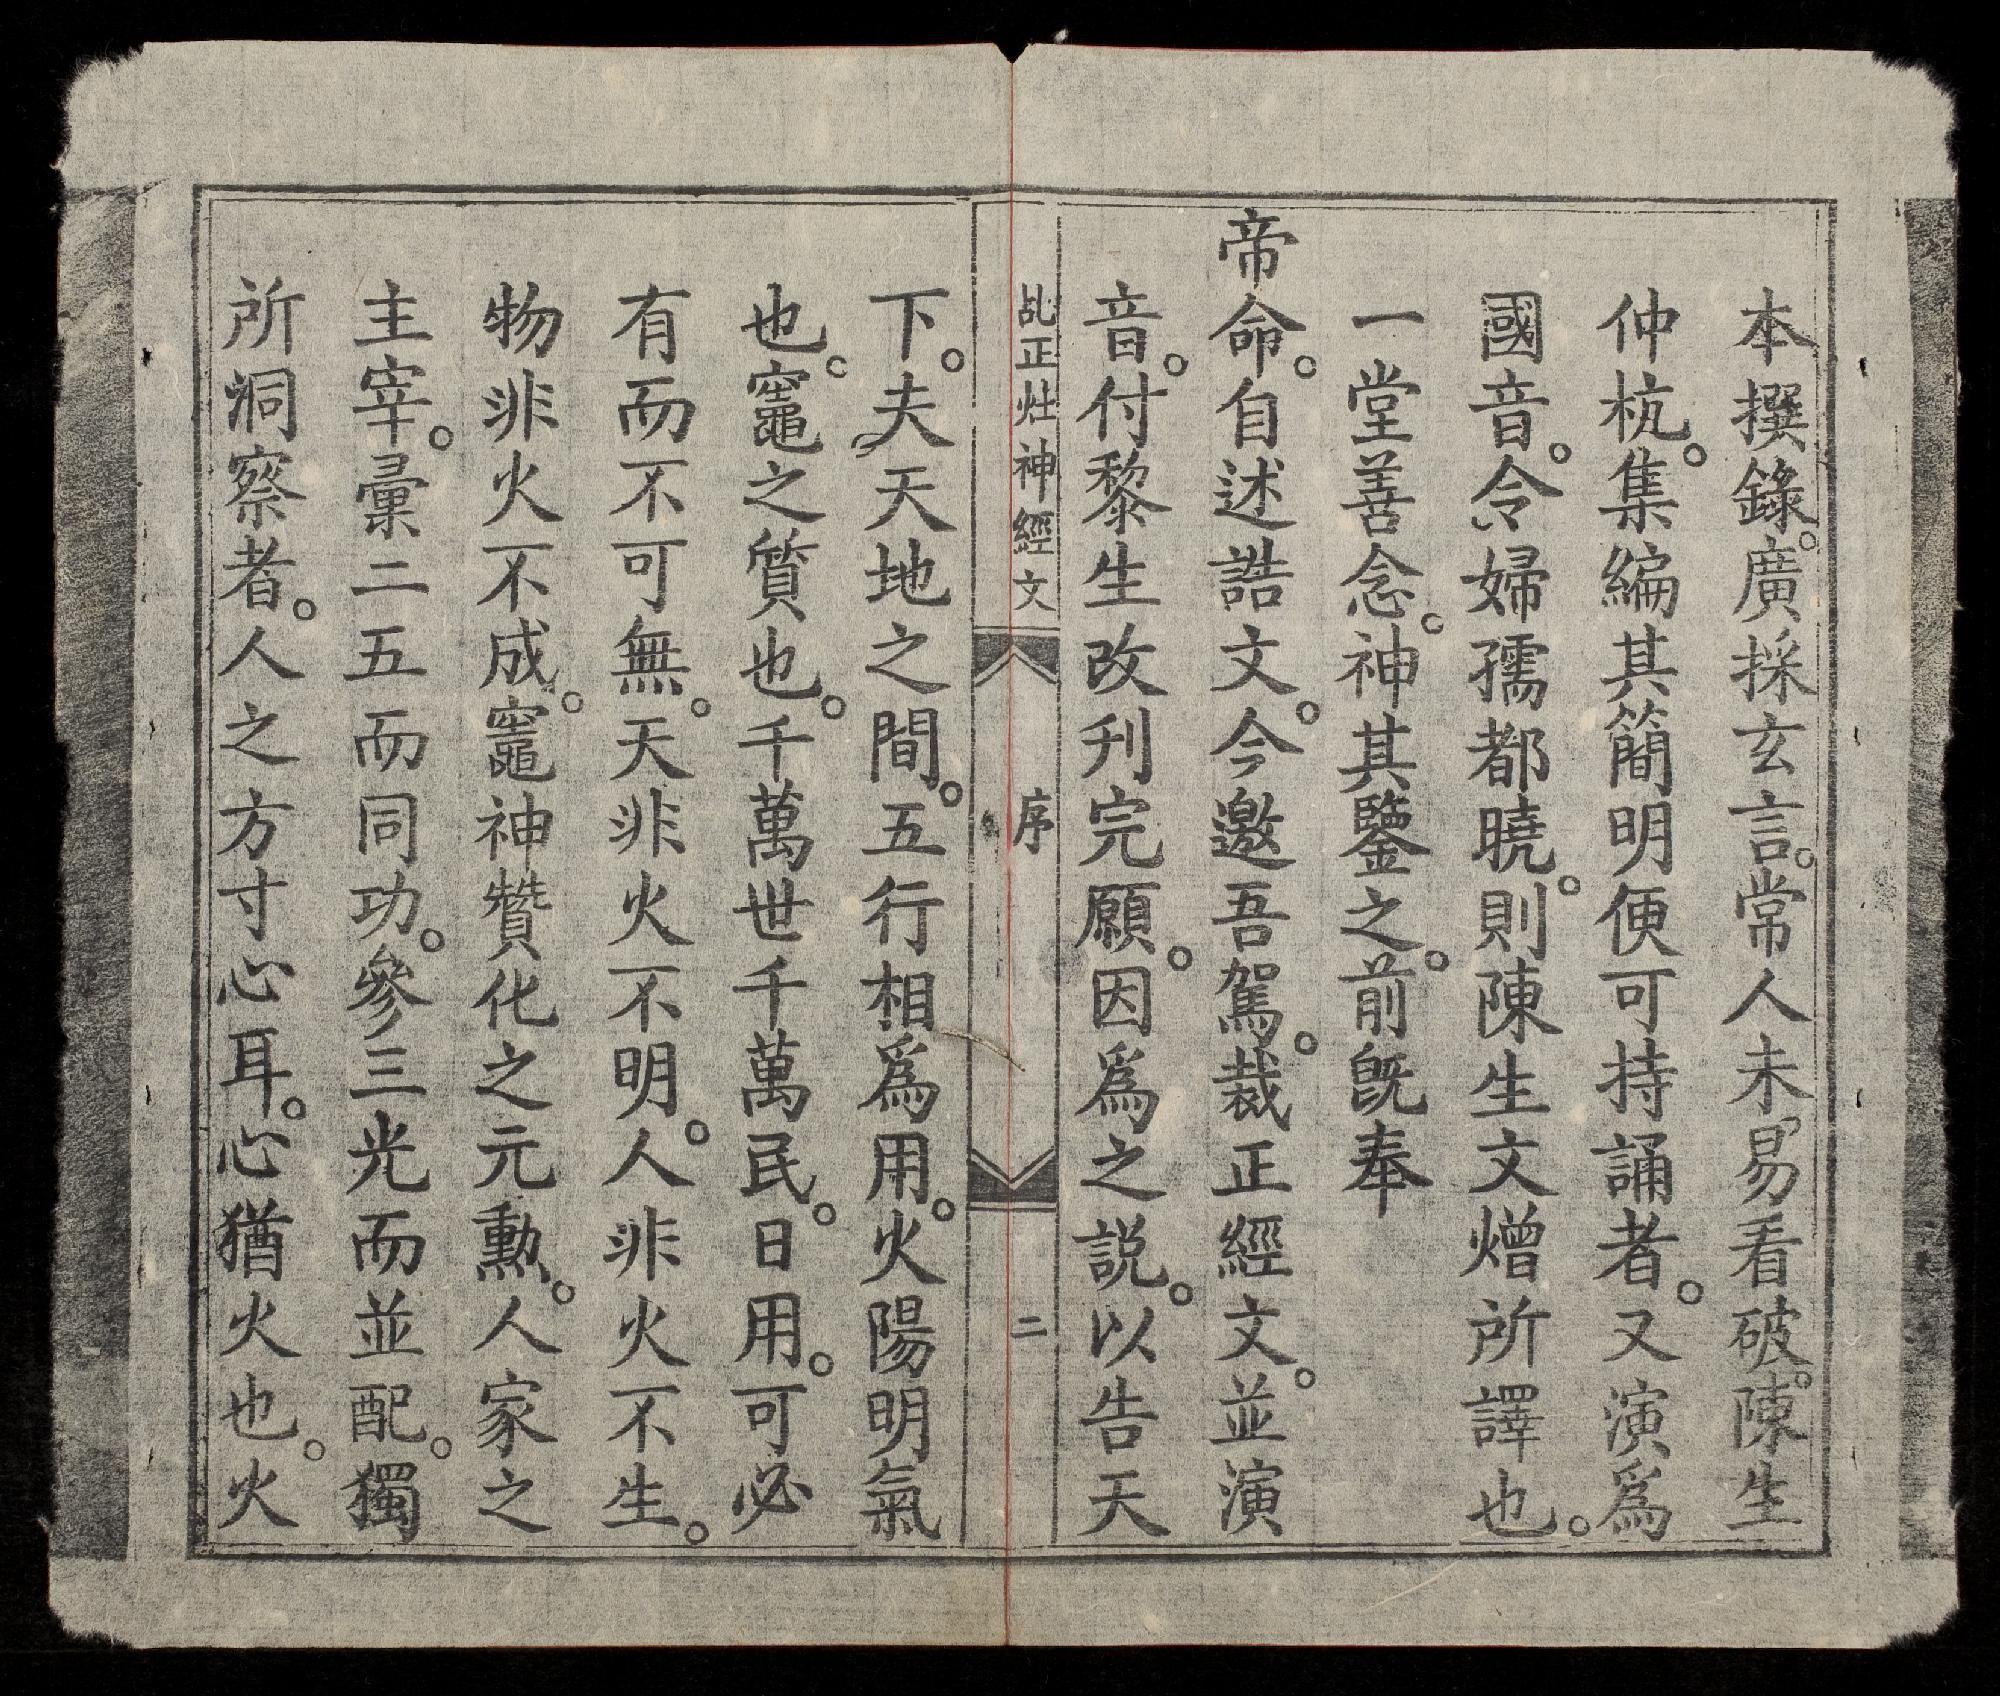 本撰錄。廣採玄言。常人未易看破。陳生
仲杭。集編其簡明便可持誦者。又演爲
國音。令婦孺都曉。則陳生文熷所譯也。
一堂善念。神其鑒之。前旣奉
帝命。自述誥文。今邀吾駕。裁正經文。並演
音。付黎生改刋完願。因爲之説。以告天
乩正灶神經文
序
二
下。夫天地之間。五行相爲用。火陽明氣
也。竈之質也。千萬世千萬民。日用。可必
有而不可無。天非火不明。人非火不生。
物非火不成。竈神贊化之元勳。人家之
主宰。彙二五而同功。參三光而並配。獨
所洞察者。人之方寸心耳。心猶火也。火